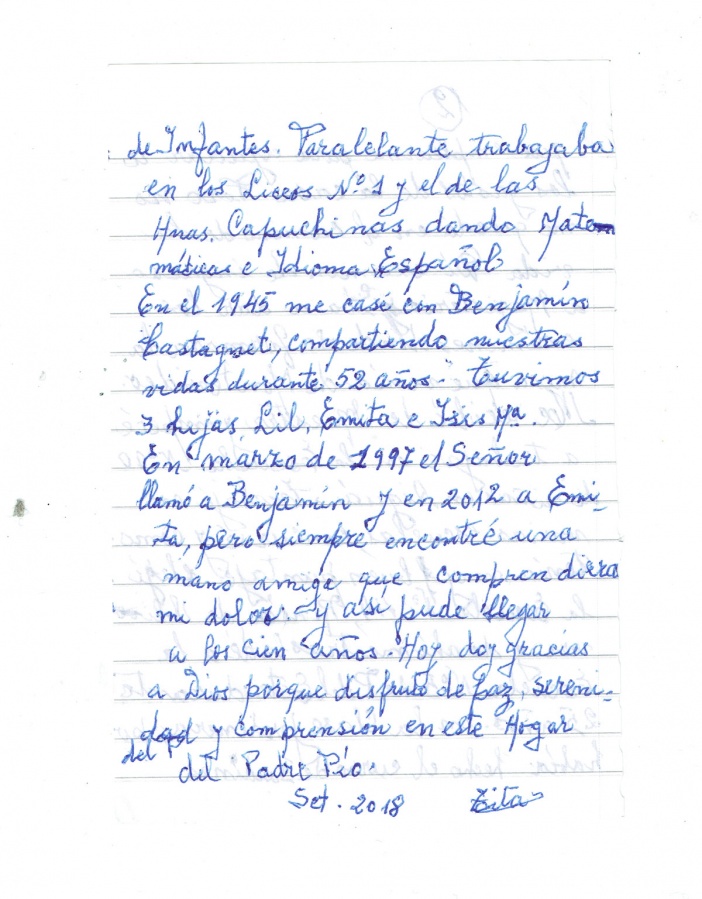 de Infantes. Paralelante trabajaba
en los Liceos Nº 1 y el de las
Hnas. Capuchinas dando Matem
máticas e Idioma Español
En el 1945 me casé con Benjamín
Castagnet, compartiendo nuestras
vidas durante 52 años.- Tuvimos
3 hijas, Lil, Emita e Isis Mª.
En marzo de 1997 el Señor
llamó a Benjamín y en 2012 a Emi-
ta, pero siempre encontré una
mano amiga que comprendiera
mi dolor.- y así pude llegar
a los cien años. Hoy doy gracias
a Dios porque disfruto de paz, sereni-
dad y comprensión en este Hogar
del
del Padre Pío.
Set. 2018 Zita